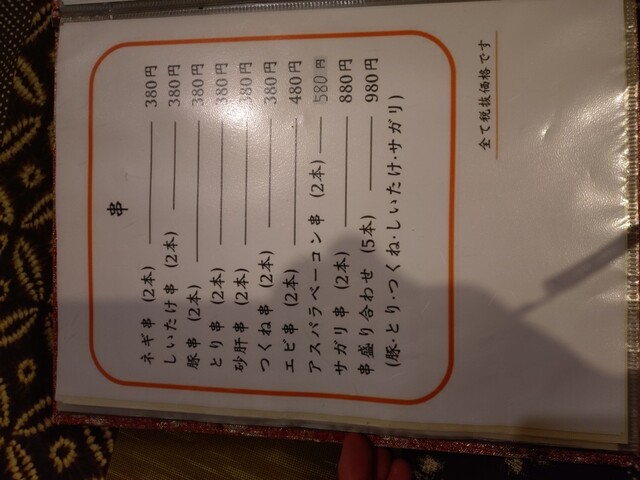 串
ネギ串 (2本) 380円
しいたけ串 (2本) 380円
豚串 (2本) 380円
とり串 (2本) 380円
砂肝串 (2本) 380円
つくね串 (2本) 380円
エビ串 (2本) 480円
アスパラベーコン串 (2本) 580円
サガリ串 (2本) 880円
串盛り合わせ (5本) 980円
(豚・とり・つくね・しいたけ・サガリ)
全て税抜価格です